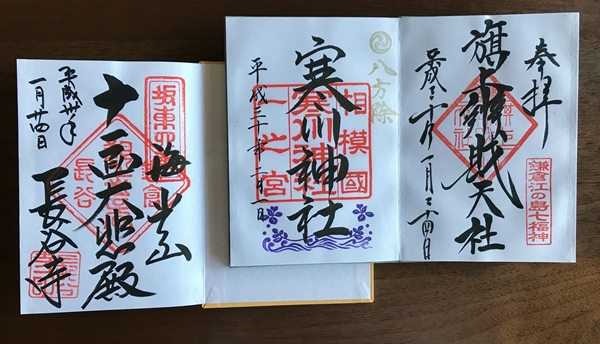 奉拝
旗上辨財天社
鎌倉江の島七福神
平成三十年一月二十四日
八方除
寒川神社
相模國
一之宮
平成三十年一月一日
坂東四
海光山
十一面大悲殿
長谷寺
平成卅年
一月廿四日